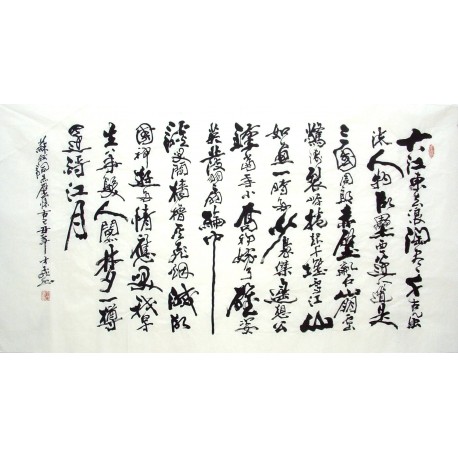 大江東去浪淘盡千古風
流人物故壘西邊人道是
三國周郎赤壁亂石崩雲
驚濤裂岸捲起千堆雪江山
如畫一時多少豪傑遙想公
瑾當年小喬初嫁了雄姿
英發羽扇綸巾
談笑間檣櫓灰飛煙滅故
國神遊多情應笑我早
生華髮人間夢一樽
還酹江月
蘇軾詞赤壁懷古